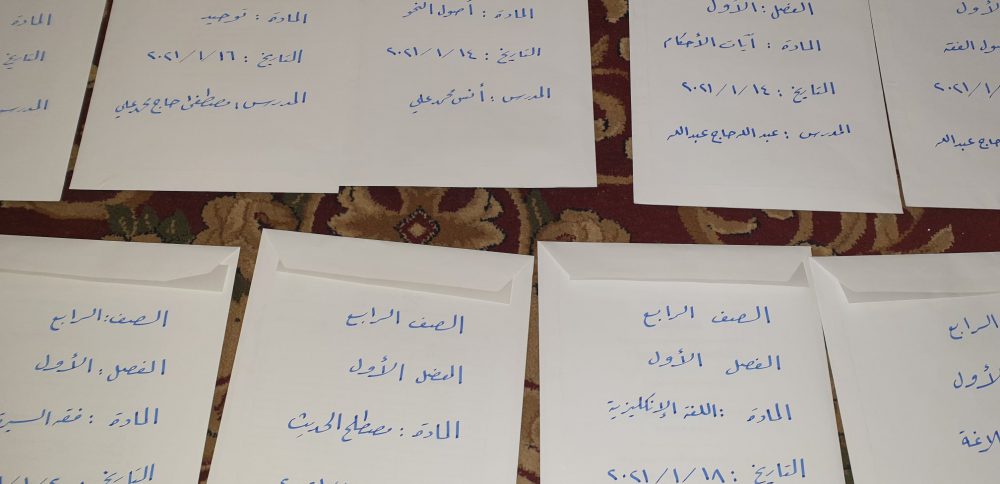 الفصل: الأول
المادة : آيات الأحكام
التاريخ : ٢٠٢١/١/١٤
المدرس : عبدالله حاج عبدالله
المادة : أصول النحو
التاريخ : ٢٠٢١/١/١٤
المدرس : أنس محمد علي
المادة : توحيد
التاريخ : ٢٠٢١/١/١٦
المدرس : مصطفى حاج محمد علي
المادة
التاريخ
المدرس
الرابع
الأول
الصف الرابع
الفصل الأول
المادة : اللغة الإنكليزية
التاريخ : ٢٠٢١/١/١٨
الصف الرابع
الفصل الأول
المادة : مصطلح الحديث
الصف: الرابع
الفصل: الأول
المادة : فقه السيرة
التاريخ :